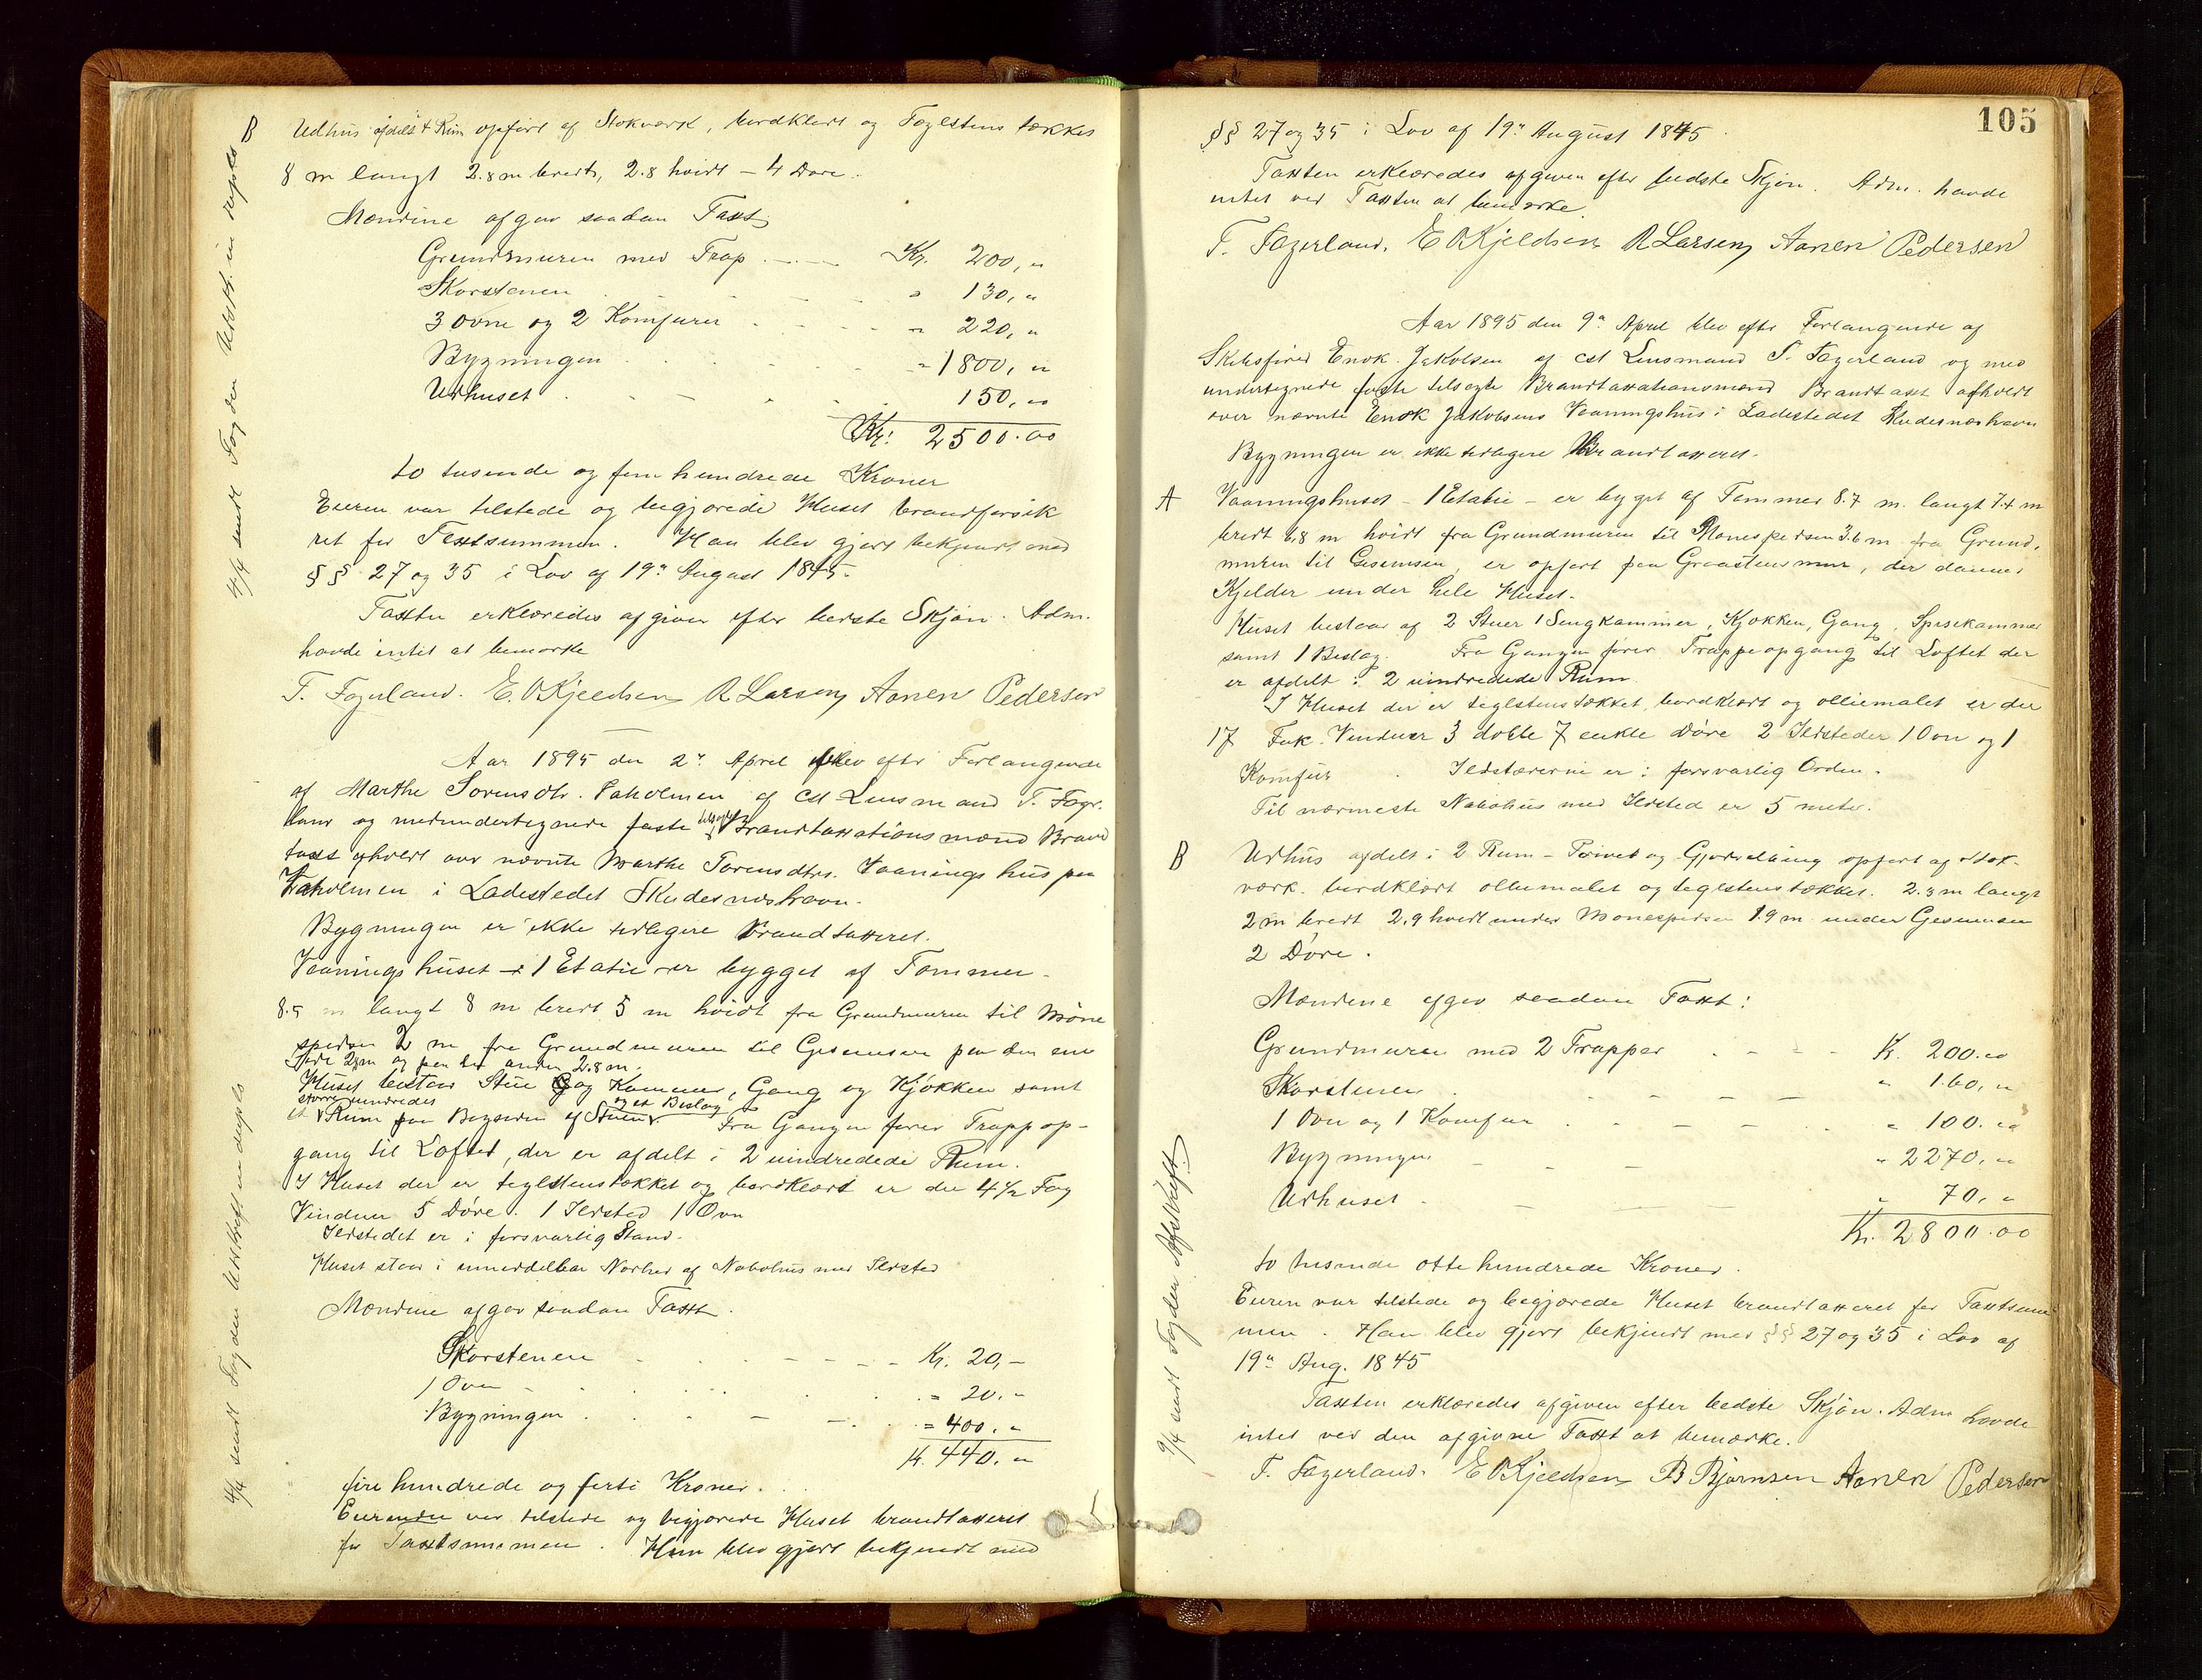 B Udhus afdelt 4 Rum opfört af Stokværk, bordklædt og Teglstens tækket
8 m langt 2.8 m bredt, 2.8 hoidt - 4 Döre.
Mændene afgav saadan Taxt
Grundmuren med Trap Kr. 200, "
Skorstenen " 130, "
3 Ovne og 2 Komfurer " 220, "
Bygningen " 1800, "
Udhuset 150, "
Kr. 2500.00
to tusende og fem hundrede Kroner
Eieren var tilstede og begjærede Huset brandforsik
ret for Taxtsummen. Han blev gjort bekjendt med
§§ 27 og 35 i Lov af 19" August 1845.
Taxten erklæredes afgiven efter bedste Skjön. Adm.
havde intet at bemærke
T. Fagerland. E. O Kjeldsen R Larsen, Aanen Pedersen
Aar 1895 den 2" April blev efter Forlangende
af Marthe Sörensdtr. Vaholmen af cst Lensmand T. Fager-
land og medundertegnede faste tilsagte Brandtaxationsmænd Brand
taxt afholdt over nævnte Marthe Sörensdtrs. Vaaningshus paa
Vaholmen i Ladestedet Skudesneshavn.
Bygningen er ikke tidligere Brandtaxeret.
Vaaningshuset - 1 Etatie - er bygget af Tømmer -
8.5 m langt 8 m bredt 5 m hoidt fra Grundmuren til Möne
spidsen 2 m fra Grundmuren til Gesimsen paa den ene
Side 2.8 m og paa den anden 2.8 m.
Huset bestaar Stue og Kammer, Gang og Kjökken samt
et større uindredet Rum paa Bagsiden af Stuen og et Beslag Fra Gangen fører Trappop-
gang til Loftet, der er afdelt i 2 uindredede Rum.
I Huset der er teglstenstækket og bordklædt er der 4 1/2 Fag
Vinduer 5 Döre. 1 Ildsted 1 Ovn
Ildstedet er i forsvarlig Stand.
Huset staar i umiddelbar Nærhed af Nabohus med Ildsted
Mændene afgav saadan Taxt.
Skorstenen Kr. 20, -
1 Ovn = 20. -
Bygningen = 400. -
Kr. 440. "
fire hundrede og förti Kroner.
Eierinden var tilstede og begjærede Huset brandtaxeret
for Taxtsummen. Hun blev gjort bekjendt med
4/4 sendt Fogden Udskrift in duplo
4/4 sendt Fogden Udskrift in duplo
105
§§ 27 og 35 i Lov af 19" August 1845.
Taxten erklæredes afgiven efter bedste Skjön. Adm. havde
intet ved Taxten at bemærke.
T. Fagerland. E O Kjeldsen R Larsen, Aanen Pedersen
Aar 1895 den 9" April blev efter Forlangende af
Skibsförer Enok Jakobsen af cst Lensmand T. Fagerland og med
undertegnede faste tilsagte Brandtaxationsmænd Brandtaxt afholdt
over nævnte Enok Jakobsens Vaaningshus i Ladestedet Skudesneshavn
Bygningen er ikke tidligere Brandtaxeret.
A Vaaningshuset - 1 Etatie - er bygget af Tømmer 8.7 m. langt 7.4 m
bredt 6.8 m hoidt fra Grundmuren til Mønespidsen 3.6 m fra Grund-
muren til Gesimsen, er opfört paa Graastensmur, der danner
Kjelder under hele Huset.
Huset bestaar af 2 Stuer 1 Sengkammer, Kjøkken, Gang, Spisekammer
samt 1 Beslag. Fra Gangen fører Trappeopgang til Loftet der
er afdelt i 2 uindredede Rum
I Huset der er teglstenstækket, bordklædt og olliemalet er der
17 Fak. Vinduer 3 doble 7 enkle Döre 2 Ildsteder 1 Ovn og 1
Komfur. Ildstæderne er i forsvarlig Orden.
Til nærmeste Nabohus med Ildsted er 5 meter.
B Udhus afdelt i 2 Rum - Privet og Gjödselbing opfört af Stok-
værk. bordklædt olliemalet og teglstenstækket. 2.3 m langt
2 m bredt 2.9 hoidt under Mønespidsen 1.9 m under Gesimsen
2 Döre.
Mændene afgav saadan Taxt:
Grundmuren med 2 Trapper Kr. 200.00
Skorstenen " 160, "
1 Ovn og 1 Komfur " 100. "
Bygningen " 2270, "
Udhuset " 70, "
Kr. 2800.00
to tusende otte hundrede Kroner.
Eieren var tilstede og begjærede Huset brandtaxeret for Taxtsum
men. Han blev gjort bekjendt med §§ 27 og 35 i Lov af
19" Aug. 1845
Taxten erklæredes afgiven efter bedste Skjön. Adm havde
intet ved den afgivne Taxt at bemærke.
T. Fagerland. E O Kjeldsen B Bjørnsen Aanen Pedersen
9/4 sendt Fogden Afskrift